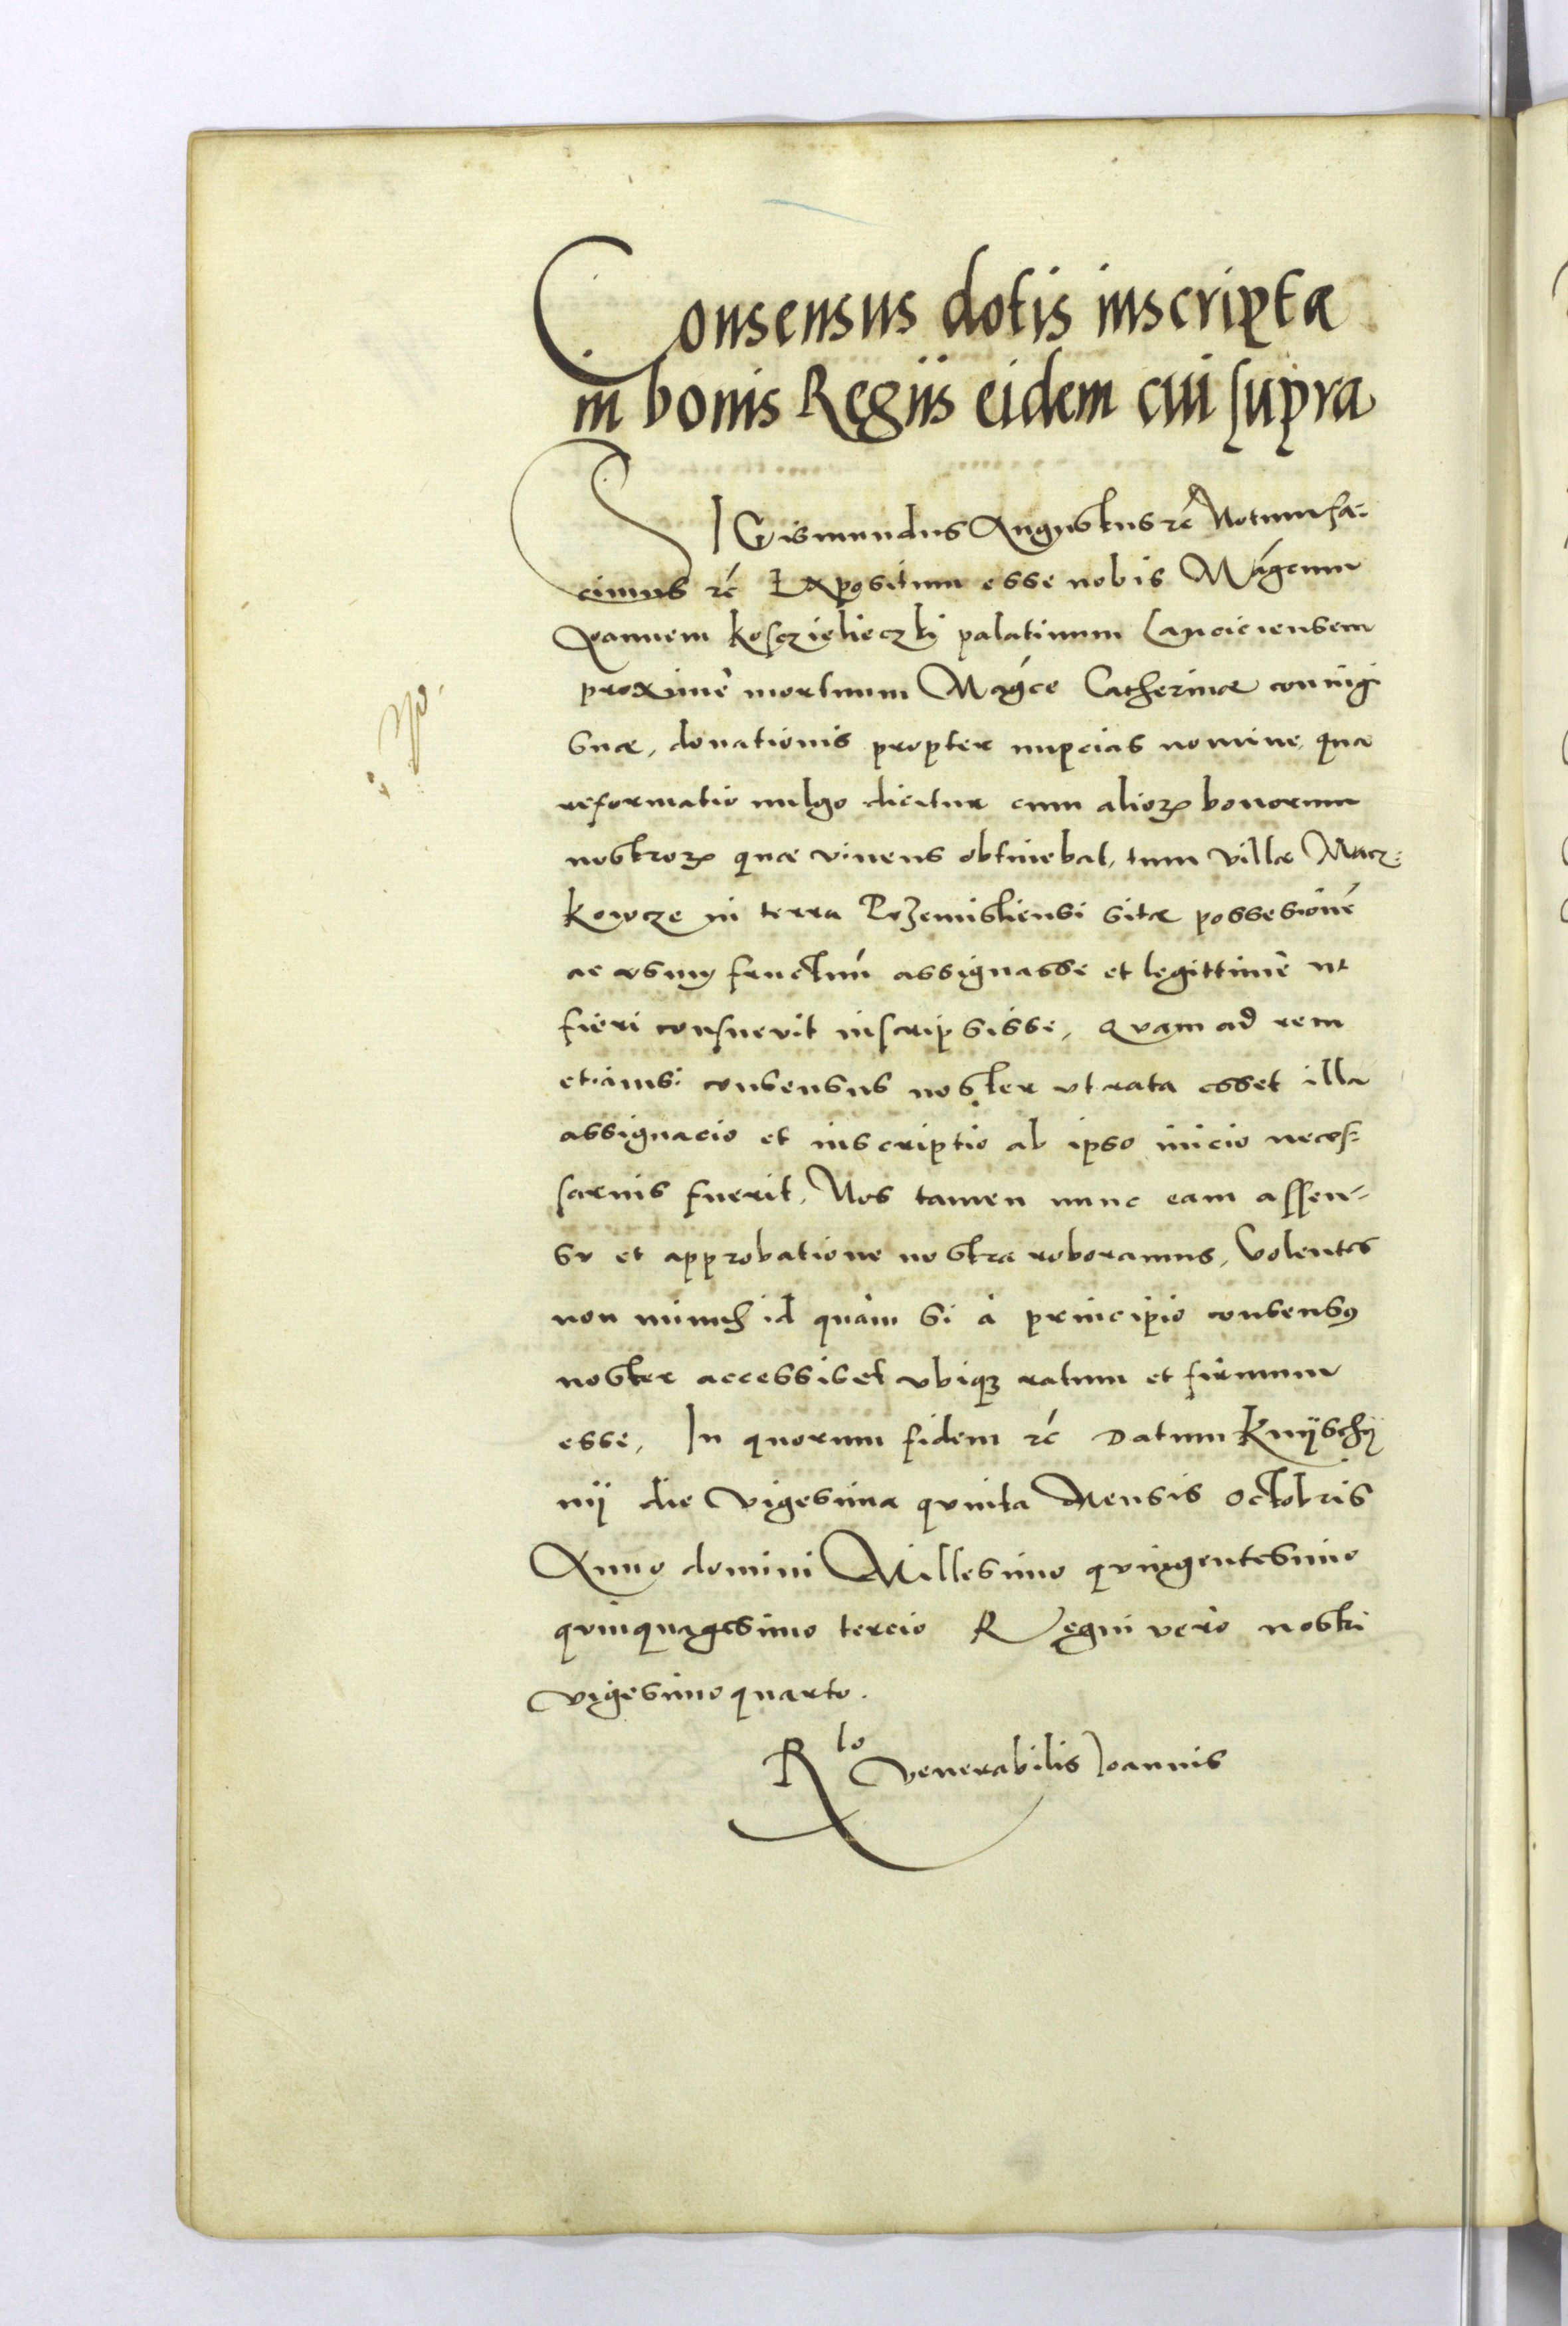 Consensus dotis inscriptæ
in bonis Regiis eidem cui supra
SIGismundus Augustus rc̃ Notum fa-
cimus rc̃ Expositum esse nobis Mágcum
Joannem Kosczielieczki palatinum Lanciciensem
proximè mortuum Mágcæ Catherinæ coniugi
suæ, donationis propter nupcias nomine, quæ
reformatio uulgo dicitur cum alioꝝ bonorum
nostroꝝ quæ viuens obtinebat, tum villæ Macz-
kowcze in terra Przemisliensi sitæ possesionẽ
ac vsumfructum̃ assignasse et legittimè ut
fieri consueuit inscripsisse, Quam ad rem
etiamsi consensus noster vt rata esset illa
assignacio et inscriptio ab ipso inicio neces-
sarius fuerit, Nos tamen nunc eam assen-
su et approbatione nostra roboramus, Volentes
non minus id quàm si à principio consensꝰ
noster accessiset vbiqꝫ ratum et firmum
esse, In quorum fidem rc̃ Datum Knÿschÿ
nij die vigesima quinta Mensis Octobris
Anno domini Millesimo quingentesimo
quinquagesimo tercio Regni vero nostri
vigesimo quarto.
Rlo Venerabilis Joannis